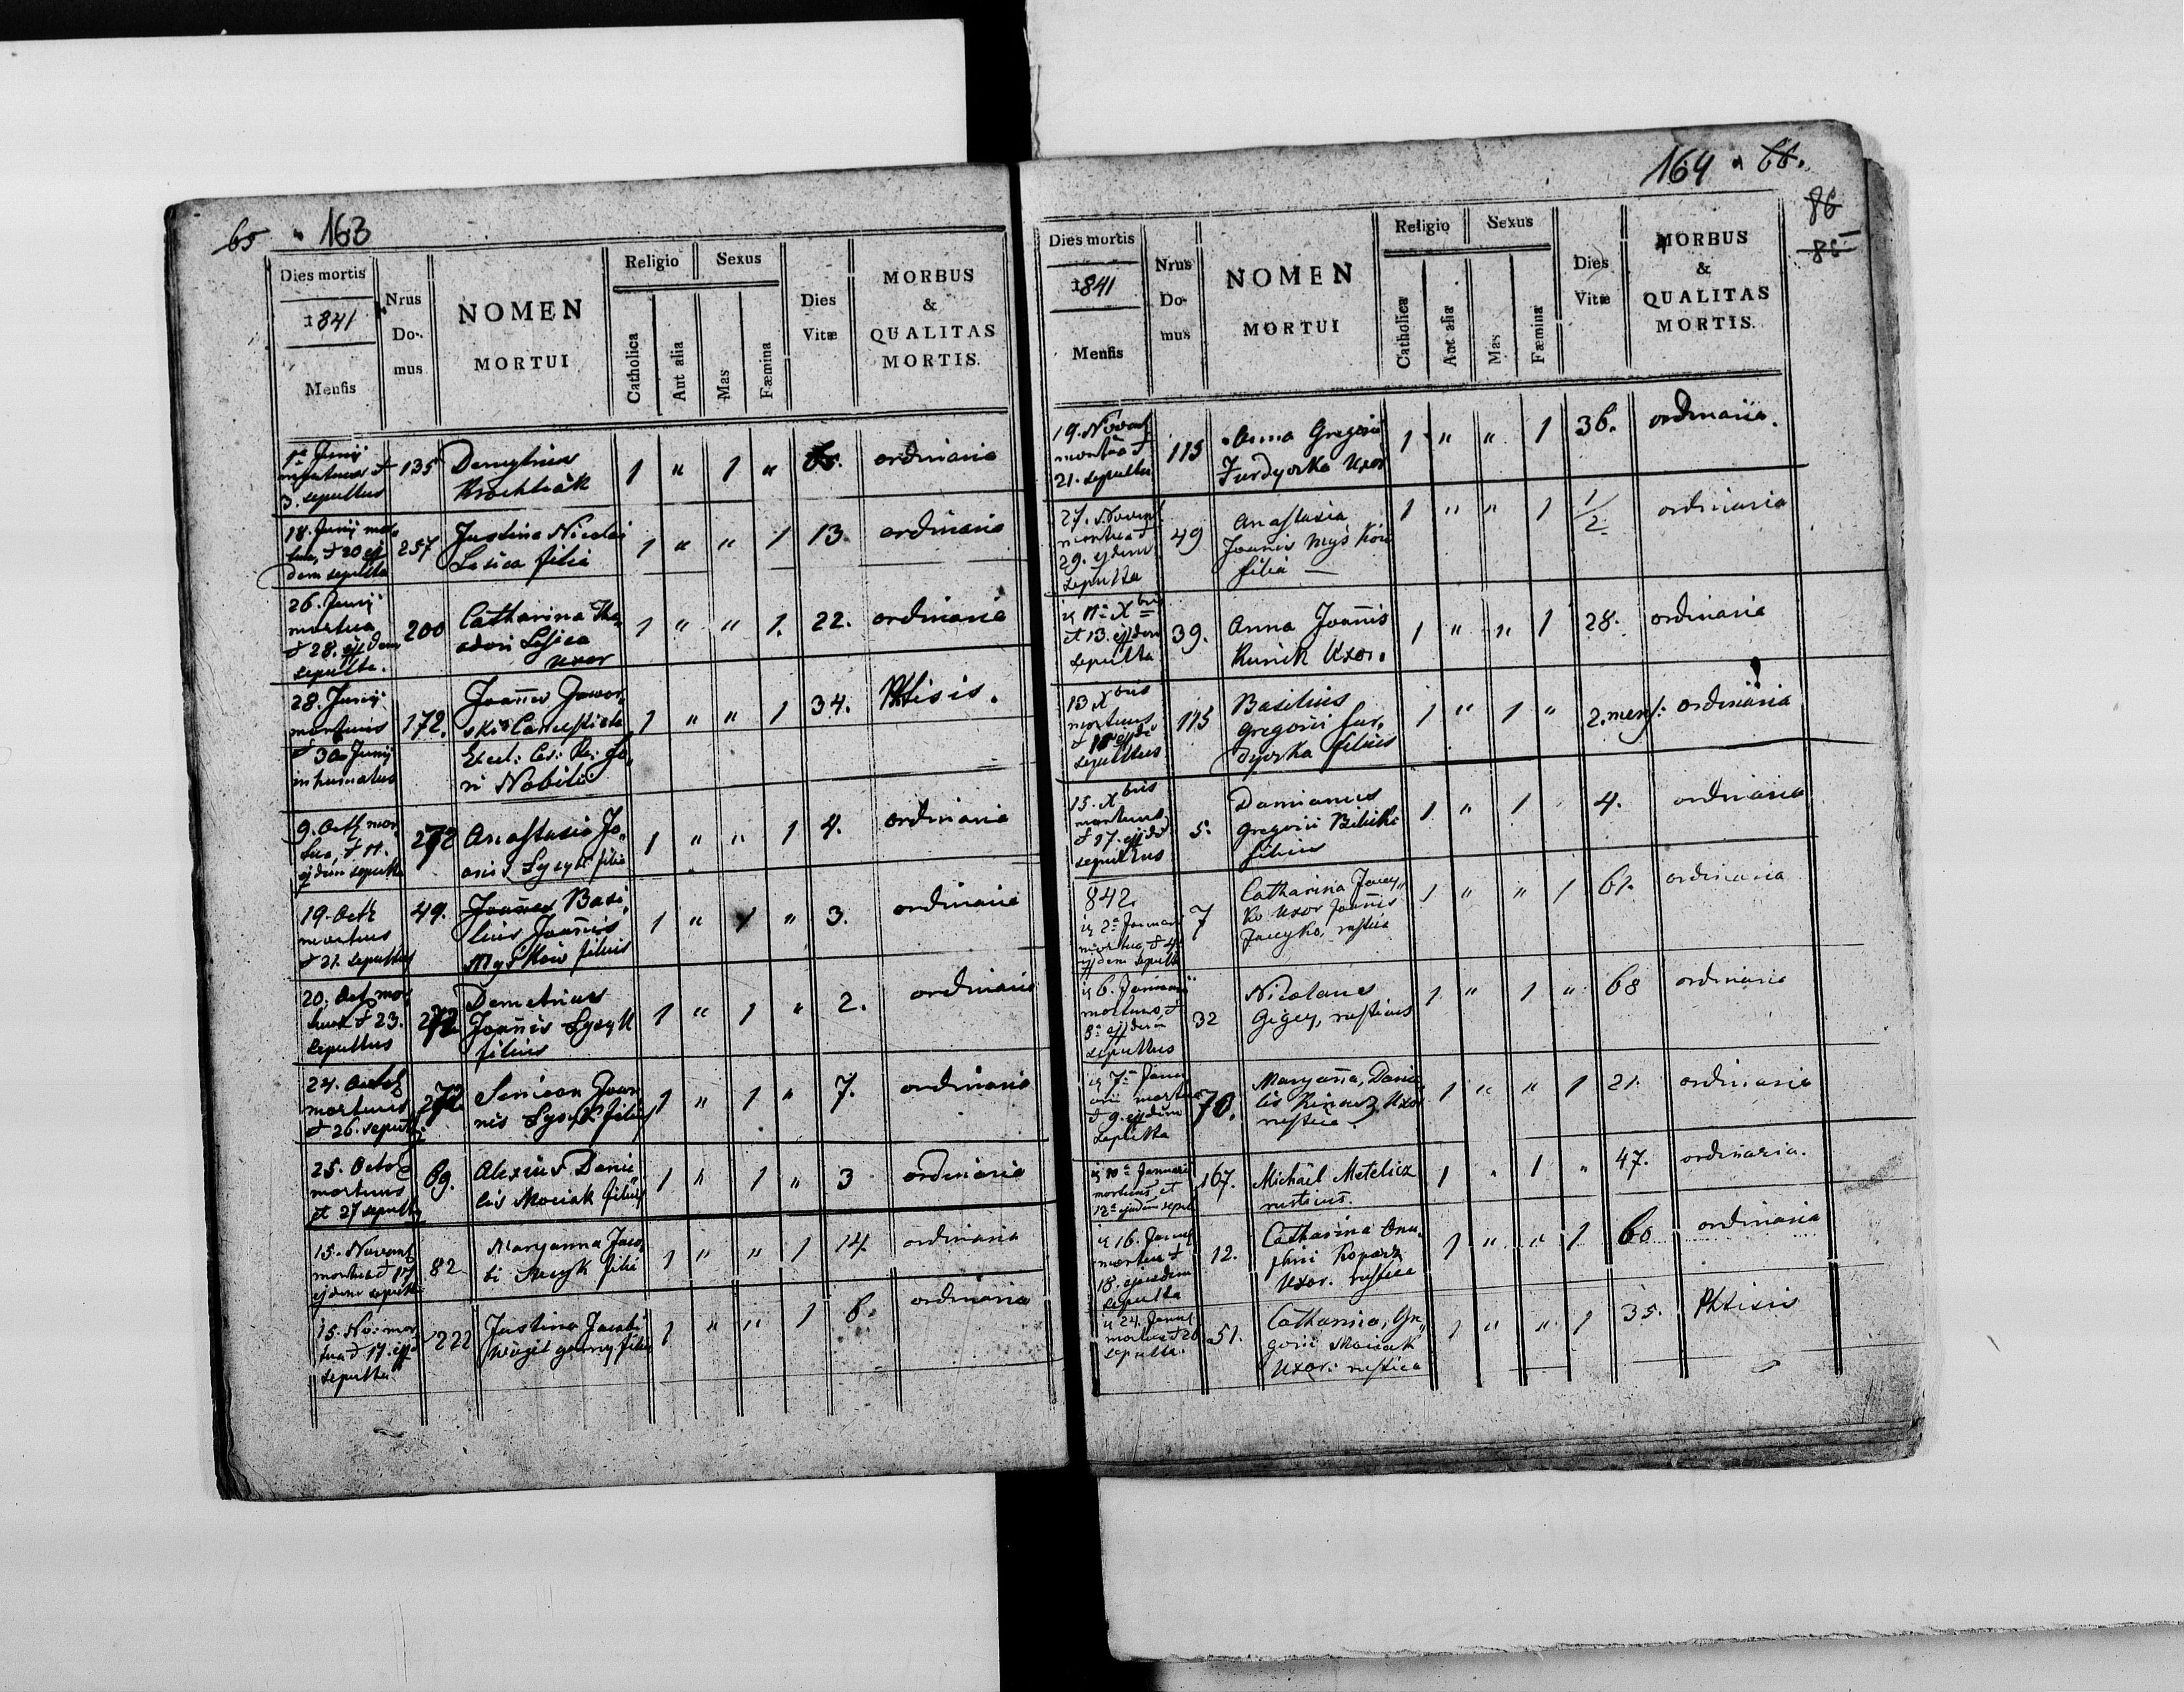 65 " 163
Dies mortis
1841
Mensis
Nrus Domus
NOMEN MORTUI
Religio
Catholica
Aut alia
Sexus
Mas
Fæmina
Dies Vitæ
MORBUS & QUALITAS MORTIS.
1a Junij
mortuus et
3. sepultus
135
Demytrius
1 " 1 "
ordinaria
18. Junij mor
tua, et 20 ej
dem sepulta
257
Justina Nicolai
Lesica filia
1 " " 1 13. ordinaria
26. Junij
mortua
et 28. ejdem
sepulta.
200
Catharina The,
odori Lesica
uxor
1 " " 1. 22. ordinaria
28. Junij
mortuus
et 30 Junij
inhumatus
172.
Joannes Jawor,
ski
1 " " 1 34. Phtisis.
Nobilis
9. Octb mor
tua, et 11.
ejdem sepulta
272
Anastasia Jo,
anis Lysyk filia
1 " " 1 4. ordinaria
19. Octb
mortuus
et 21. sepultus
49.
Joannes Basi,
lius Joannis
Myśkow filius
1 " 1 " 3. ordinaria
20. Oct mor
tuus et 23.
sepultus
272
Demetrius
Joannis Lysyk
filius
1 " 1 " 2. ordinaria
24. Octob
mortuus
et 26. sepult
272
Simeon Joan
nis Lysyk filius
1 " 1 " 7. ordinaria
25. Octob
mortuus
et 27 sepult
69.
Alexius Danie
lis Mociak filius
1 " 1 " 3 ordinaria
15. Novemb
mortua et 17
ejdem sepulta
82
Maryanna Jaco,
bi filia
1 " " 1 14. ordinaria
15. No: mor
tua et 17. ejd
sepulta
222
Justina Jacobi
filia
1 " " 1 6. ordinaria
164 " 66.
86
86
Dies mortis
1841
Mensis
Nrus Domus
NOMEN MORTUI
Religio
Catholica
Aut alia
Sexus
Mas
Fæmina
Dies Vitæ
MORBUS & QUALITAS MORTIS.
19. Novemb
mortua et
21. sepulta
115
Anna Gregorii
Furdyczka Uxor
1 " " 1 36. ordinaria.
27. Novemb
mortua et
29. ejdem
sepulta
49
Anastasia
Joannis Myśkow
filia
1 " " 1 1/2 ordinaria
11a Xbris
et 13. ejdem
sepulta
39.
Anna Joannis
Kunik Uxor.
1 " " 1 28. ordinaria
13 Xbris
mortuus
et
sepultus
115
Basilius
Gregorii Fur,
dyczka filius
1 " 1 " 2. mens: ordinaria
15. Xbris
mortuus
et 17. ejd
sepultus
5.
Damianus
Gregorii Biliki
filius
1 " 1 4. ordinaria
842.
2a Januarii
mortua, et 4
ejdem sepulta
7
Catharina Jacey,,
ko Uxor Joannis
Jaceyko, rustica
1 " " 1 61. ordinaria
6. Januarii
mortuus, et
8a ejdem
sepultus
32
Nicolaus
Gigey, rusticus
1 " 1 " 68 ordinaria
7a Janu
arii mortua
et 9. ejdem
sepulta
70.
Maryanna, Danie
lis Uxor
rustica.
1 " " 1 21. ordinaria
10a Januarii
mortuus et
12a ejusdem sepul
167.
Michaël Metelicz
rusticus.
1 " 1 " 47. ordinaria.
16. Janua
mortua et
18. ejusdem
sepulta
12.
Catharina Onu,
phrii Kopacz
Uxor. rustica
1 " " 1 60 ordinaria
24. Janua
mortua et 26
sepulta.
51.
Catharina, Gre,,
gorii Mociak
Uxor. rustica
1 " " 1 35. Phtisis